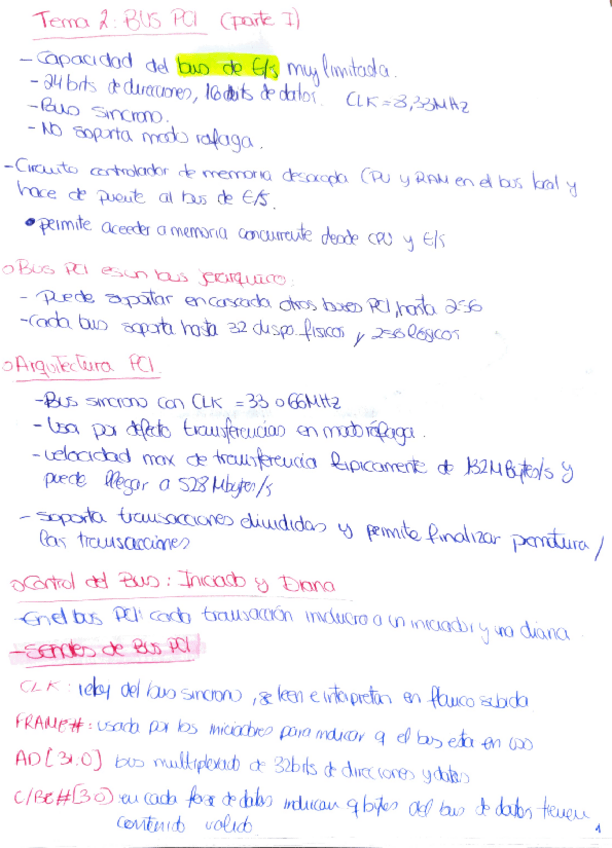 Tema 2: BUS PCI (parte I)
- Capacidad del bus de E/S muy limitada.
- 24 bits de direcciones, 16 bits de datos. CLK = 8,33MHz
- Bus síncrono.
- No soporta modo ráfaga.
- Circuito controlador de memoria desacopla CPU y RAM en el bus local y
hace de puente al bus de E/S.
• permite acceder a memoria concurrente desde CPU y E/S
○ Bus PCI es un bus jerárquico:
- Puede soportar en cascada otros buses PCI, hasta 256
- Cada bus soporta hasta 32 dispo. físicos y 256 lógicos
○ Arquitectura PCI.
- Bus síncrono con CLK = 33 o 66MHz
- Usa por defecto transferencias en modo ráfaga.
- velocidad max de transferencia típicamente de 132 MBytes/s y
puede llegar a 528 Mbytes/s
- soporta transacciones divididas y permite finalizar
las transacciones
○ Control del Bus: Iniciado y Diana
- En el bus PCI cada transacción involucra a un iniciador y una diana
- Señales de Bus PCI
CLK: reloj del bus síncrono, se leen e interpretan en flanco subida
FRAME#: usada por los iniciadores para indicar q el bus esta en uso
AD[31.0] bus multiplexado de 32bits de direcciones y datos
C/BE#[3.0] en cada fase de datos indican q bytes del bus de datos tienen
contenido valido
1